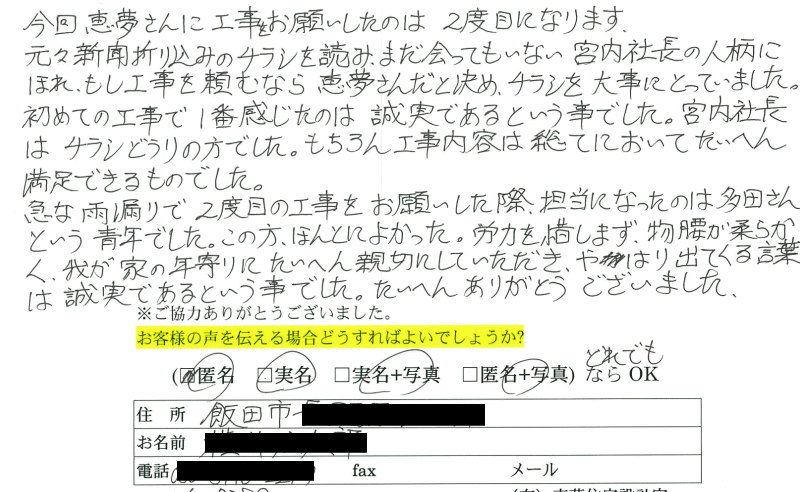 今回 恵夢さんに工事をお願いしたのは 2度目になります.
元々新聞折り込みのチラシを読み.まだ会ってもいない 宮内社長の人柄に
ほれ、もし工事を頼むなら 恵夢さんだと決め、チラシを 大事にとっていました。
初めての工事で 1番感じたのは 誠実であるという事でした。宮内社長
は チラシどうりの方でした。もちろん工事内容は 総てにおいてたいへん
満足できるものでした。
急な雨漏りで 2度目の工事を お願いした際、担当になったのは多田さん
という 青年でした。この方、ほんとによかった。労力を惜しまず、物腰が柔らか
く、我が家の年寄りにたいへん親切にしていただき、やはり出てくる言葉
は誠実であるという事でした。たいへんありがとう ございました、
※ご協力ありがとうございました。
お客様の声を伝える場合どうすればよいでしょうか?
どれでも
(□匿名 □実名 □実名+写真 □匿名+写真) なら OK
住 所 飯田市
お名前
電話 fax メール